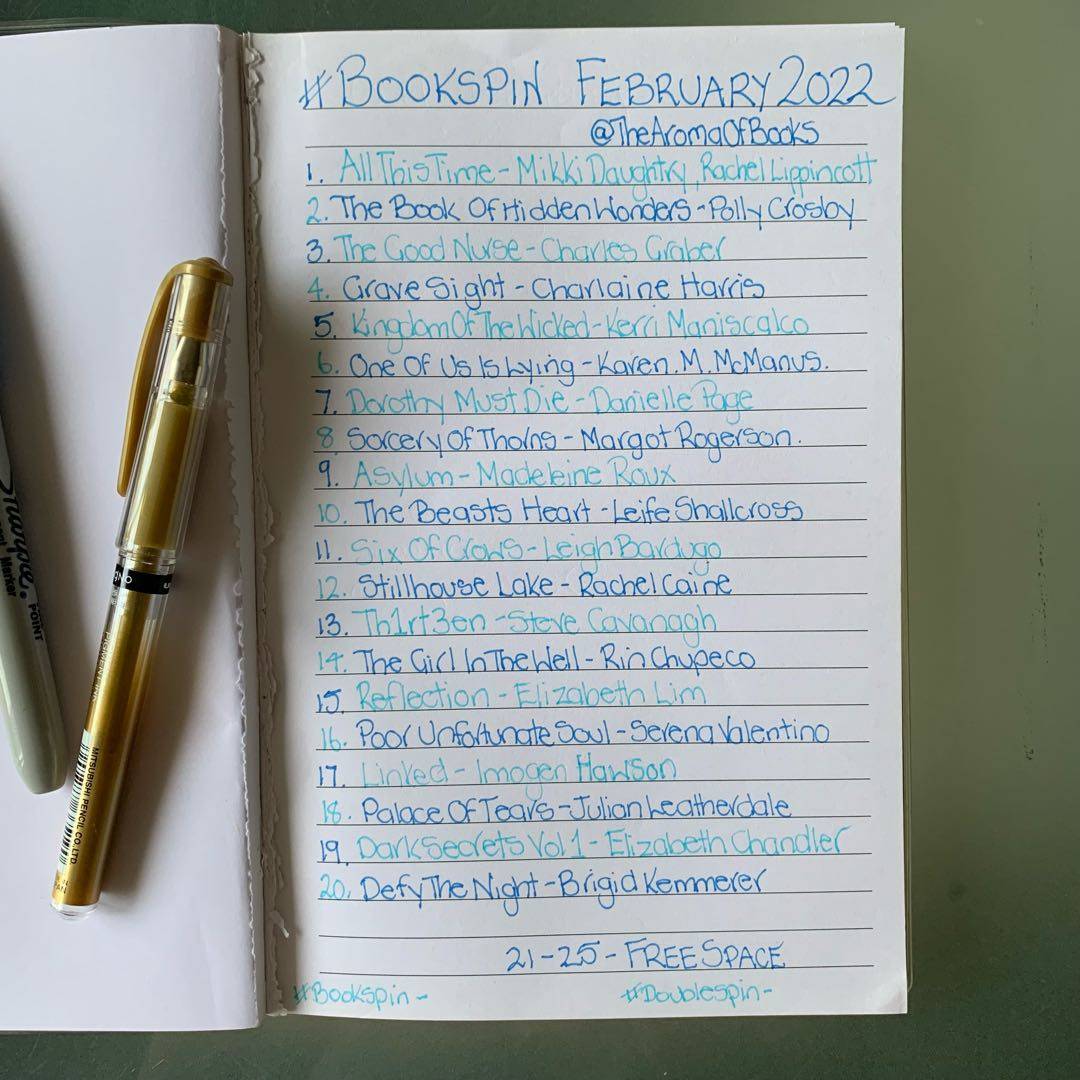 #BOOKSPIN FEBRUARY 2022
@TheAromaOfBooks
1. All This Time - Mikki Daughtry, Rachel Lippincott
2. The Book Of Hidden Wonders - Polly Crosby
3. The Good Nurse - Charles Graber
4. Grave Sight - Charlaine Harris
5. Kingdom Of The Wicked - Kerri Maniscalco
6. One Of Us Is Lying - Karen. M. McManus.
7. Dorothy Must Die - Danielle Page
8. Sorcery Of Thorns - Margot Rogerson.
9. Asylum - Madeleine Roux
10. The Beasts Heart - Leife Shallcross
11. Six Of Crows - Leigh Bardugo
12. Stillhouse Lake - Rachel Caine
13. Th1rt3en - Steve Cavanagh
14. The Girl In The Well - Rin Chupeco
15. Reflection - Elizabeth Lim
16. Poor Unfortunate Soul - Serena Valentino
17. Linked - Imogen Hawson
18. Palace Of Tears - Julian Leatherdale
19. Dark Secrets Vol 1 - Elizabeth Chandler
20. Defy The Night - Brigid Kemmerer
21-25 - FREE SPACE
#Bookspin -
#Doublespin -
Sharpie.
Marker
POINT
MITSUBISHI PENCIL CO., LTD.